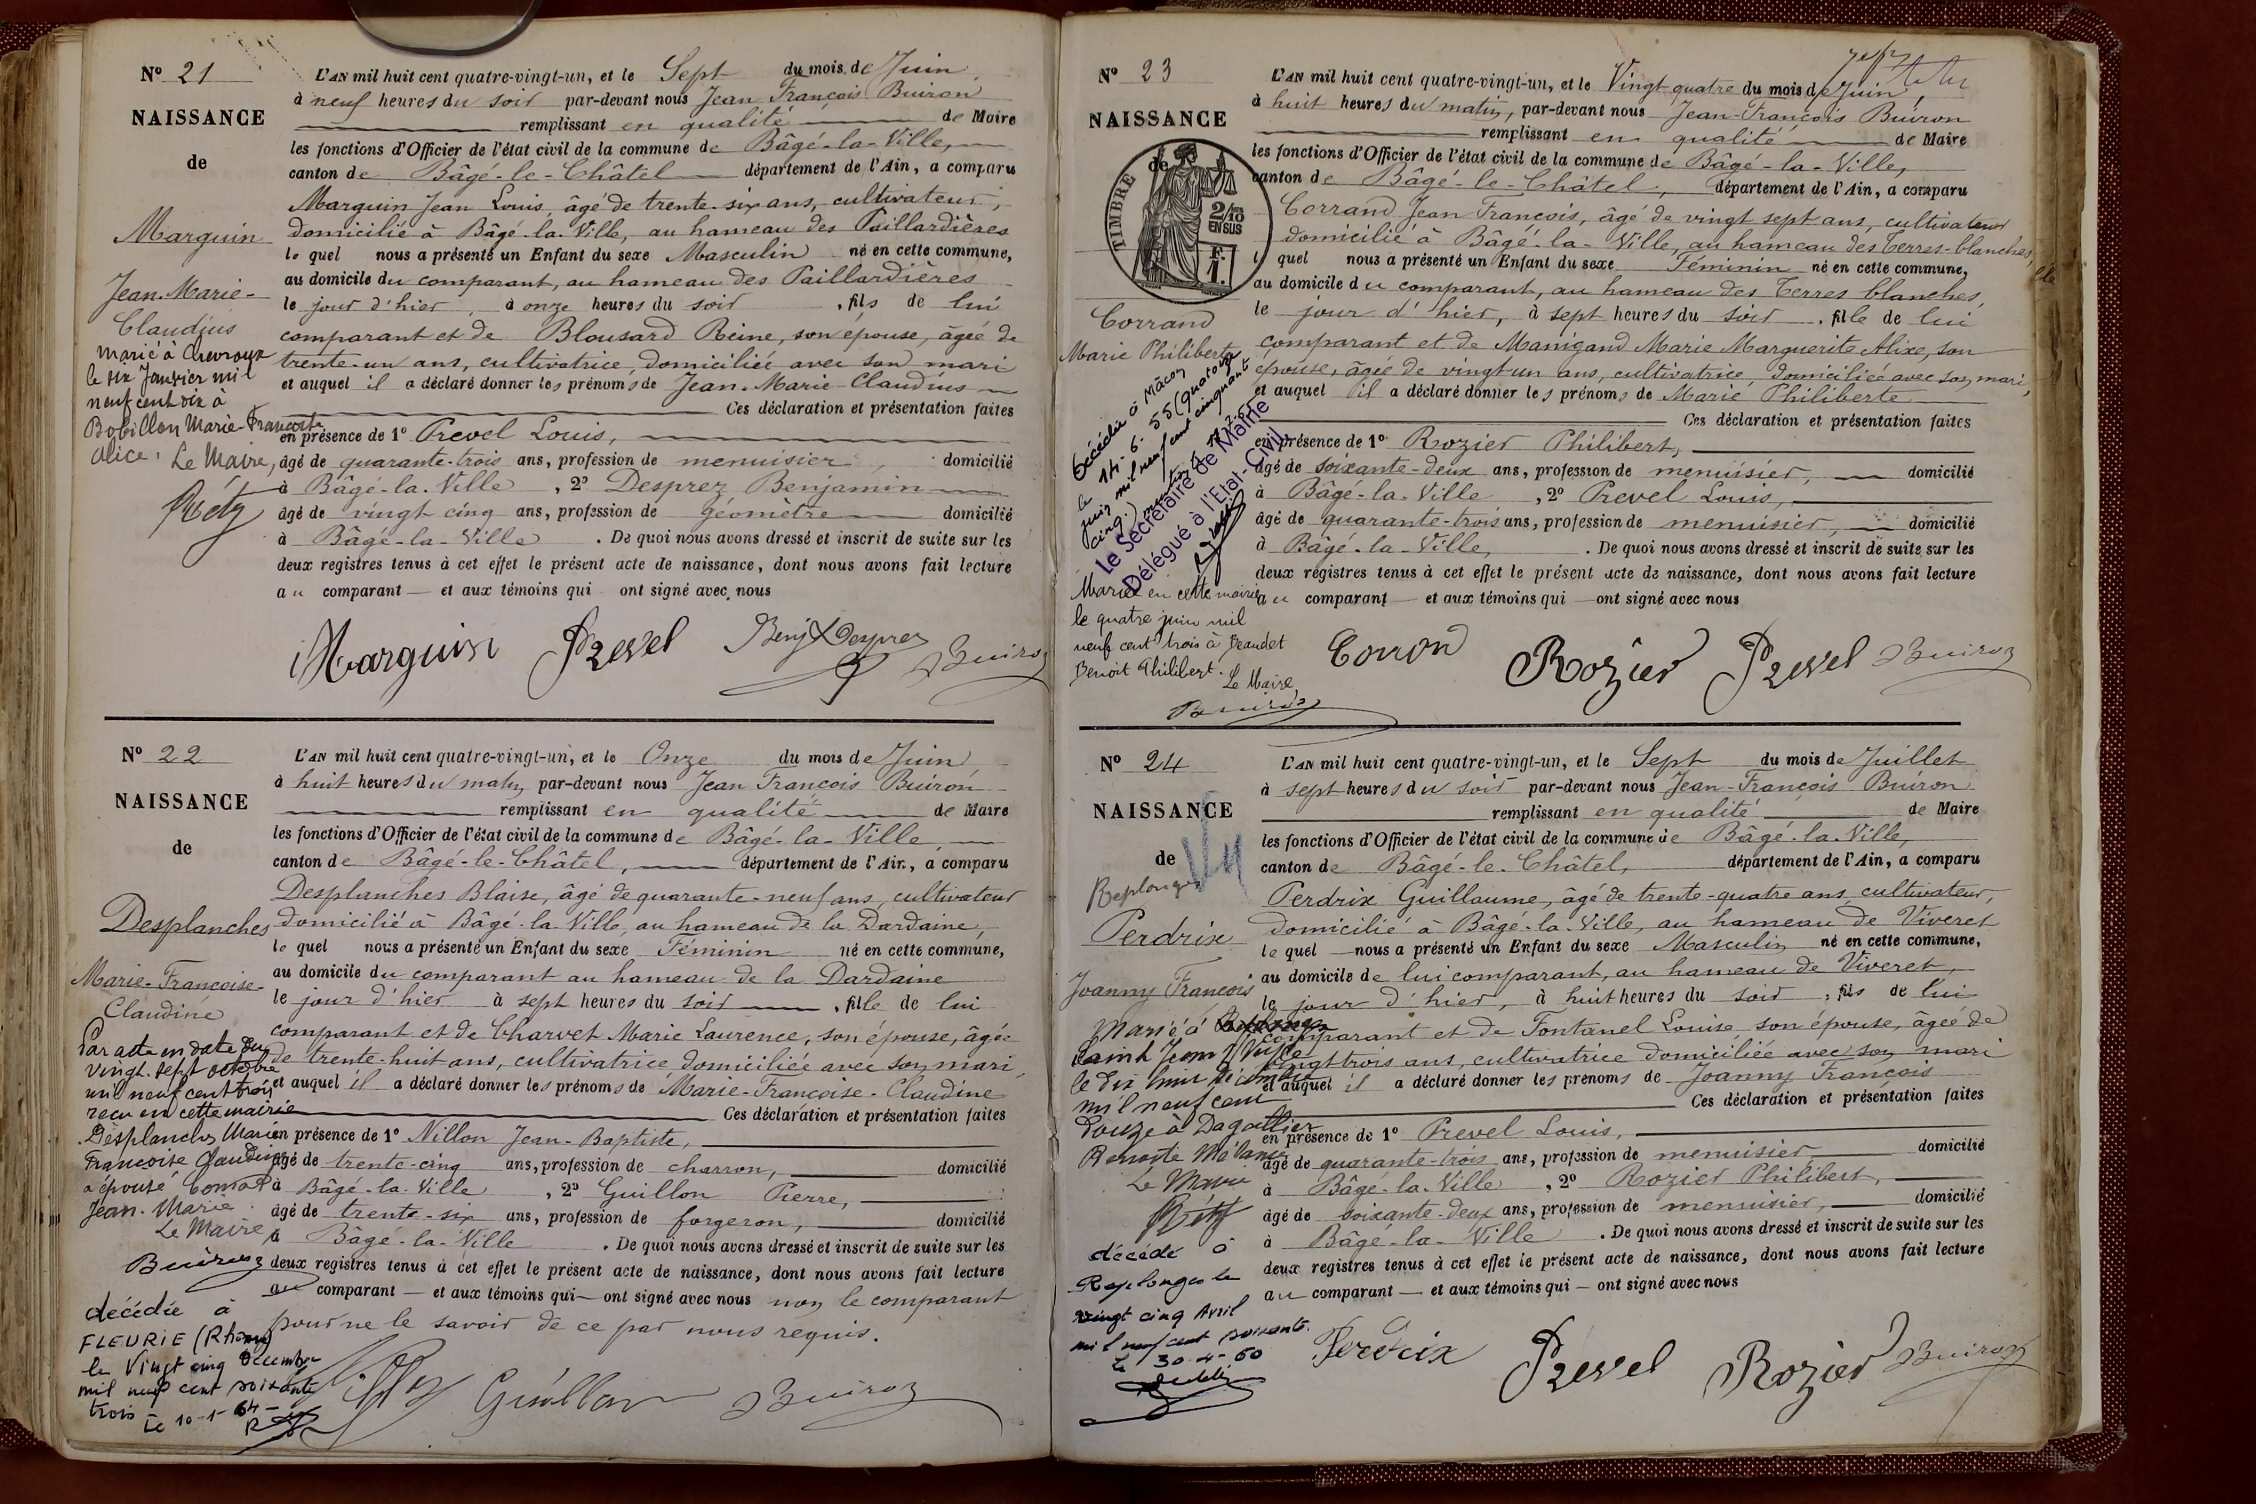 N° 21
NAISSANCE
de
Marguin
Jean-Marie-
Claudius
marié à Chevroux
le six Janvier mil
neuf cent dix à
Bobillon Marie-Françoise
Alice. Le Maire,
Réty
L'AN mil huit cent quatre-vingt-un, et le Sept du mois de Juin,
à neuf heures du soir par-devant nous Jean François Buiron
remplissant en qualité de Maire
les fonctions d'Officier de l'état civil de la commune de Bâgé-la-Ville,
canton de Bâgé-le-Châtel département de l'Ain, a comparu
Marguin Jean Louis, âgé de trente-six ans, cultivateur,
domicilié à Bâgé-la-Ville, au hameau des Paillardières
le quel nous a présenté un Enfant du sexe Masculin né en cette commune,
au domicile du comparant, au hameau des Paillardières
le jour d'hier, à onze heures du soir, fils de lui
comparant et de Blousard Reine, son épouse, âgée de
trente-un ans, cultivatrice, domiciliée avec son mari
et auquel il a déclaré donner les prénoms de Jean-Marie-Claudius
Ces déclaration et présentation faites
en présence de 1° Prevel Louis,
âgé de quarante-trois ans, profession de menuisier, domicilié
à Bâgé-la-Ville, 2° Desprez Benjamin
âgé de vingt cinq ans, profession de géomètre domicilié
à Bâgé-la-Ville. De quoi nous avons dressé et inscrit de suite sur les
deux registres tenus à cet effet le présent acte de naissance, dont nous avons fait lecture
au comparant — et aux témoins qui ont signé avec nous
Marguin Prevel Benj Desprez Buiron
N° 22
NAISSANCE
de
Desplanches
Marie-Françoise-
Claudine
Par acte en date du
vingt-sept octobre
mil neuf cent trois
reçu en cette mairie
Desplanches Marie
Françoise Claudine
a épousé
Jean-Marie.
Le Maire,
Buiron
décédée à
FLEURIE (Rhône)
le Vingt cinq décembre
mil neuf cent soixante
trois
Le 10-1-64-
L'AN mil huit cent quatre-vingt-un, et le Onze du mois de Juin,
à huit heures du matin, par-devant nous Jean François Buiron,
remplissant en qualité de Maire
les fonctions d'Officier de l'état civil de la commune de Bâgé-la-Ville,
canton de Bâgé-le-Châtel, département de l'Ain, a comparu
Desplanches Blaise, âgé de quarante-neuf ans, cultivateur
domicilié à Bâgé-la-Ville, au hameau de la Dardaine,
le quel nous a présenté un Enfant du sexe Féminin né en cette commune,
au domicile du comparant au hameau de la Dardaine
le jour d'hier à sept heures du soir, fille de lui
comparant et de Charvet Marie Laurence, son épouse, âgée
de trente-huit ans, cultivatrice domiciliée avec son mari,
et auquel il a déclaré donner les prénoms de Marie-Françoise-Claudine
Ces déclaration et présentation faites
en présence de 1° Nillon Jean-Baptiste,
âgé de trente-cinq ans, profession de charron, domicilié
à Bâgé-la-Ville, 2° Guillon Pierre,
âgé de trente-six ans, profession de forgeron, domicilié
à Bâgé-la-Ville. De quoi nous avons dressé et inscrit de suite sur les
deux registres tenus à cet effet le présent acte de naissance, dont nous avons fait lecture
au comparant — et aux témoins qui — ont signé avec nous non le comparant
pour ne le savoir de ce par nous requis.
Nillon Guillon Buiron
N° 23
NAISSANCE
de
TIMBRE
2/10 EN SUS
F. 1.
Corrand
Marie Philiberte
Décédée à Mâcon
le 14-6-55 (quatorze
juin mil neuf cent cinquante
cinq.)
Le Secrétaire de Mairie
Délégué à l'Etat-Civil,
Mariée en cette mairie
le quatre juin mil
neuf cent trois à Deaudet
Benoit Philibert.
Le Maire,
Buiron
L'AN mil huit cent quatre-vingt-un, et le Vingt-quatre du mois de Juin,
à huit heures du matin, par-devant nous Jean-François Buiron
remplissant en qualité de Maire
les fonctions d'Officier de l'état civil de la commune de Bâgé-la-Ville,
canton de Bâgé-le-Châtel, département de l'Ain, a comparu
Corrand Jean François, âgé de vingt sept ans, cultivateur
domicilié à Bâgé-la-Ville, au hameau des Terres-blanches,
le quel nous a présenté un Enfant du sexe Féminin né en cette commune,
au domicile du comparant, au hameau des Terres blanches,
le jour d'hier, à sept heures du soir, fille de lui
comparant et de Manigand Marie Marguerite Alixe, son
épouse, âgée de vingt un ans, cultivatrice, domiciliée avec son mari,
et auquel il a déclaré donner les prénoms de Marie Philiberte
Ces déclaration et présentation faites
en présence de 1° Rozier Philibert,
âgé de soixante-deux ans, profession de menuisier, domicilié
à Bâgé-la-Ville, 2° Prevel Louis,
âgé de quarante-trois ans, profession de menuisier, domicilié
à Bâgé-la-Ville, . De quoi nous avons dressé et inscrit de suite sur les
deux registres tenus à cet effet le présent acte de naissance, dont nous avons fait lecture
au comparant — et aux témoins qui — ont signé avec nous
Corron Rozier Prevel Buiron
N° 24
NAISSANCE
de
Replonges
Perdrix
Joanny François
Marié à
Saint Jean s/Veyle
le dix huit décembre
mil neuf cent
douze à Dagallier
Benoite Mélanie
Le Maire
Réty
décédé à
Replonges le
vingt cinq Avril
mil neuf cent soixante.
Le 30-4-60
L'AN mil huit cent quatre-vingt-un, et le Sept du mois de Juillet
à sept heures du soir par-devant nous Jean-François Buiron
remplissant en qualité de Maire
les fonctions d'Officier de l'état civil de la commune de Bâgé-la-Ville,
canton de Bâgé-le-Châtel, département de l'Ain, a comparu
Perdrix Guillaume, âgé de trente-quatre ans cultivateur,
domicilié à Bâgé-la-Ville, au hameau de Viveret
le quel — nous a présenté un Enfant du sexe Masculin né en cette commune,
au domicile de lui comparant, au hameau de Viveret,
le jour d'hier, à huit heures du soir, fils de lui
comparant et de Fontanel Louise son épouse, âgée de
vingt trois ans, cultivatrice domiciliée avec son mari
et auquel il a déclaré donner les prénoms de Joanny François
Ces déclaration et présentation faites
en présence de 1° Prevel Louis,
âgé de quarante-trois ans, profession de menuisier, domicilié
à Bâgé-la-Ville, 2° Rozier Philibert,
âgé de soixante-deux ans, profession de menuisier, domicilié
à Bâgé-la-Ville. De quoi nous avons dressé et inscrit de suite sur les
deux registres tenus à cet effet le présent acte de naissance, dont nous avons fait lecture
au comparant — et aux témoins qui — ont signé avec nous
Perdrix Prevel Rozier Buiron